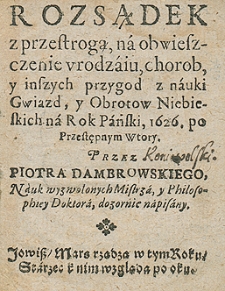 ROZSĄDEK
z przestrogą, ná obwiesz-
czenie vrodzáiu, chorob,
y inszych przygod z náuki
Gwiazd, y Obrotow Niebie-
skich ná Rok Páński, 1626, po
Przestępnym Wtory.
PRZEZ
PIOTRA DAMBROWSKIEGO,
Náuk wyzwolonych Mistrzá, y Philoso-
phiey Doktorá, dozornie nápisány.
Jowisz/ Mars rządzą w tym Roku/
Stárzec k nim wzgląda po oku.